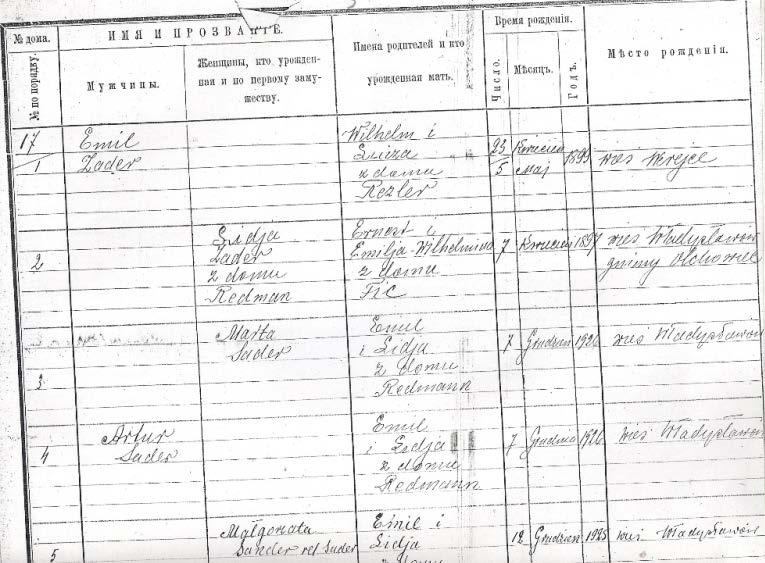 № дома.
№ по порядку.
ИМЯ И ПРОЗВАНІЕ.
Мужчины.
Женщины, кто урожден-
ная и по первому заму-
жеству.
Имена родителей и кто
урожденная мать.
Время рожденія.
Число.
Мѣсяцъ.
Годъ.
Мѣсто рожденія.
17
1
Emil
Zader
Wilhelm i
Luiza
z domu
Rezler
23
5
Kwiecień
Maj
1899
wieś
2
Lidja
Zader
z domu
Redman
Ernest i
Emilja-Wilhelmina
z domu
Fic
7
Kwiecień
wieś Władysławów
gminy Olchowiec
3
Marta
Sader
Emil
i Lidja
z domu
Redmann
7
Grudzień
1926
wieś Władysławów
4
Artur
Sader
Emil
i Lidja
z domu
Redmann
7
Grudnia
1926
wieś Władysławów
5
Małgorzata
Sander vel Sader
Emil i
Lidja
z domu
12
Grudzien
1925
wieś Władysławów